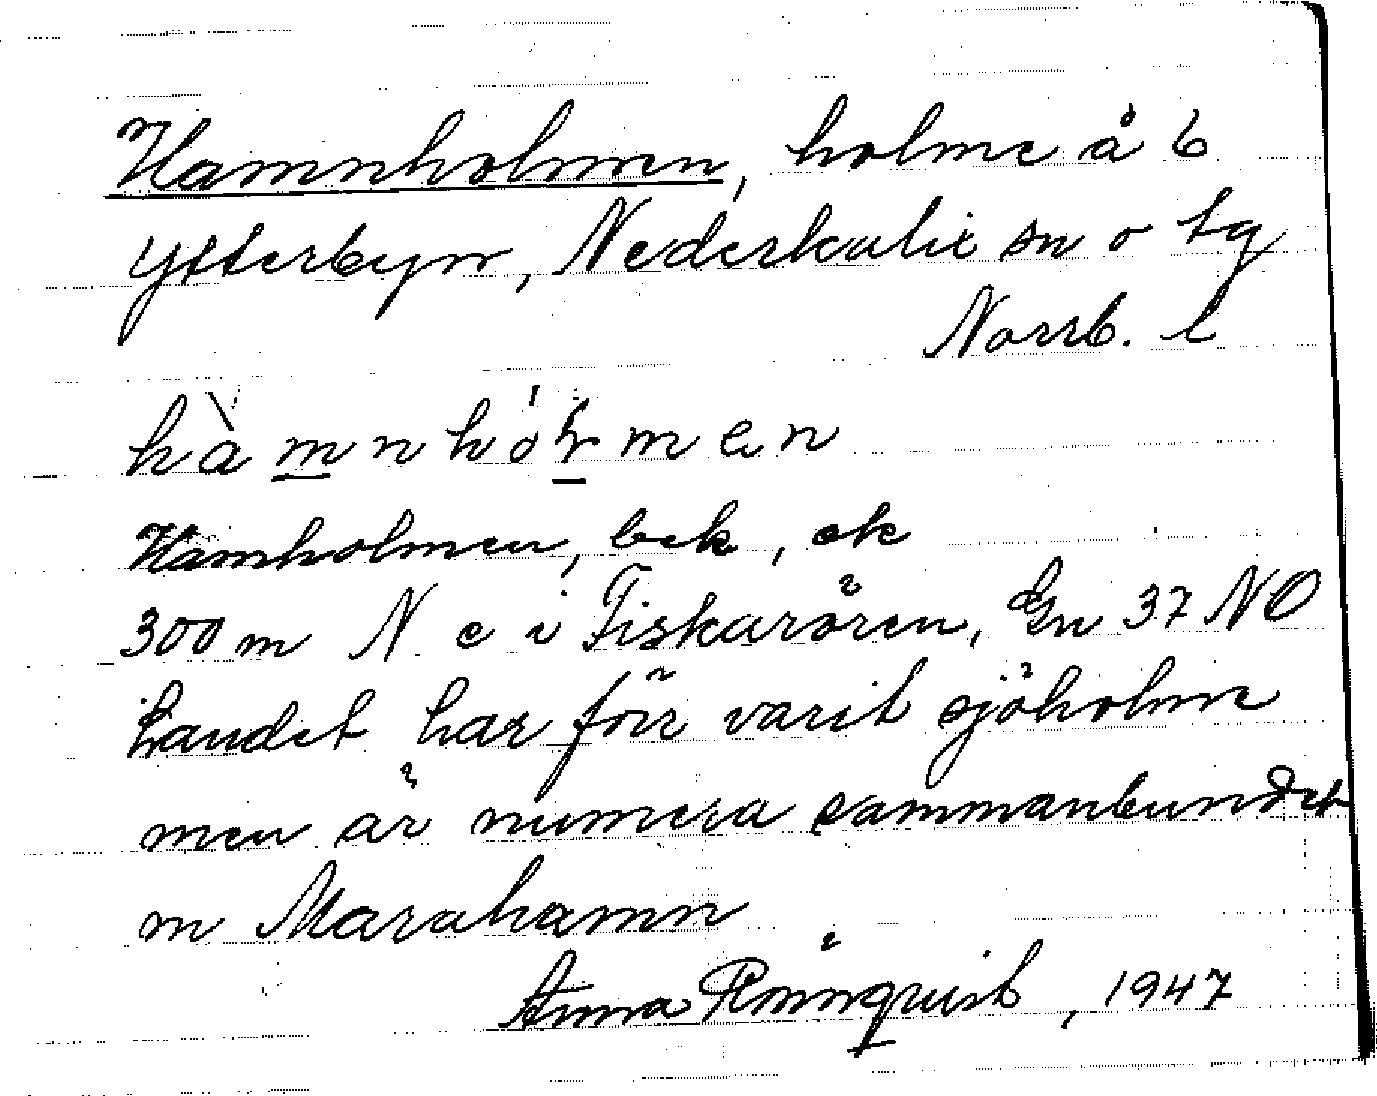 Hamnholmen, holme å 6
Ytterbyn, Nederkalix sn o tg
Norrb. l
hàmnhólmen
Hamholmen, bek, ek
300 m N e i Fiskarören, Gn 37 NO
Landet har förr varit sjöholme
men är numera sammanbundet
m Marahamn
Anna Rönnqvist, 1947